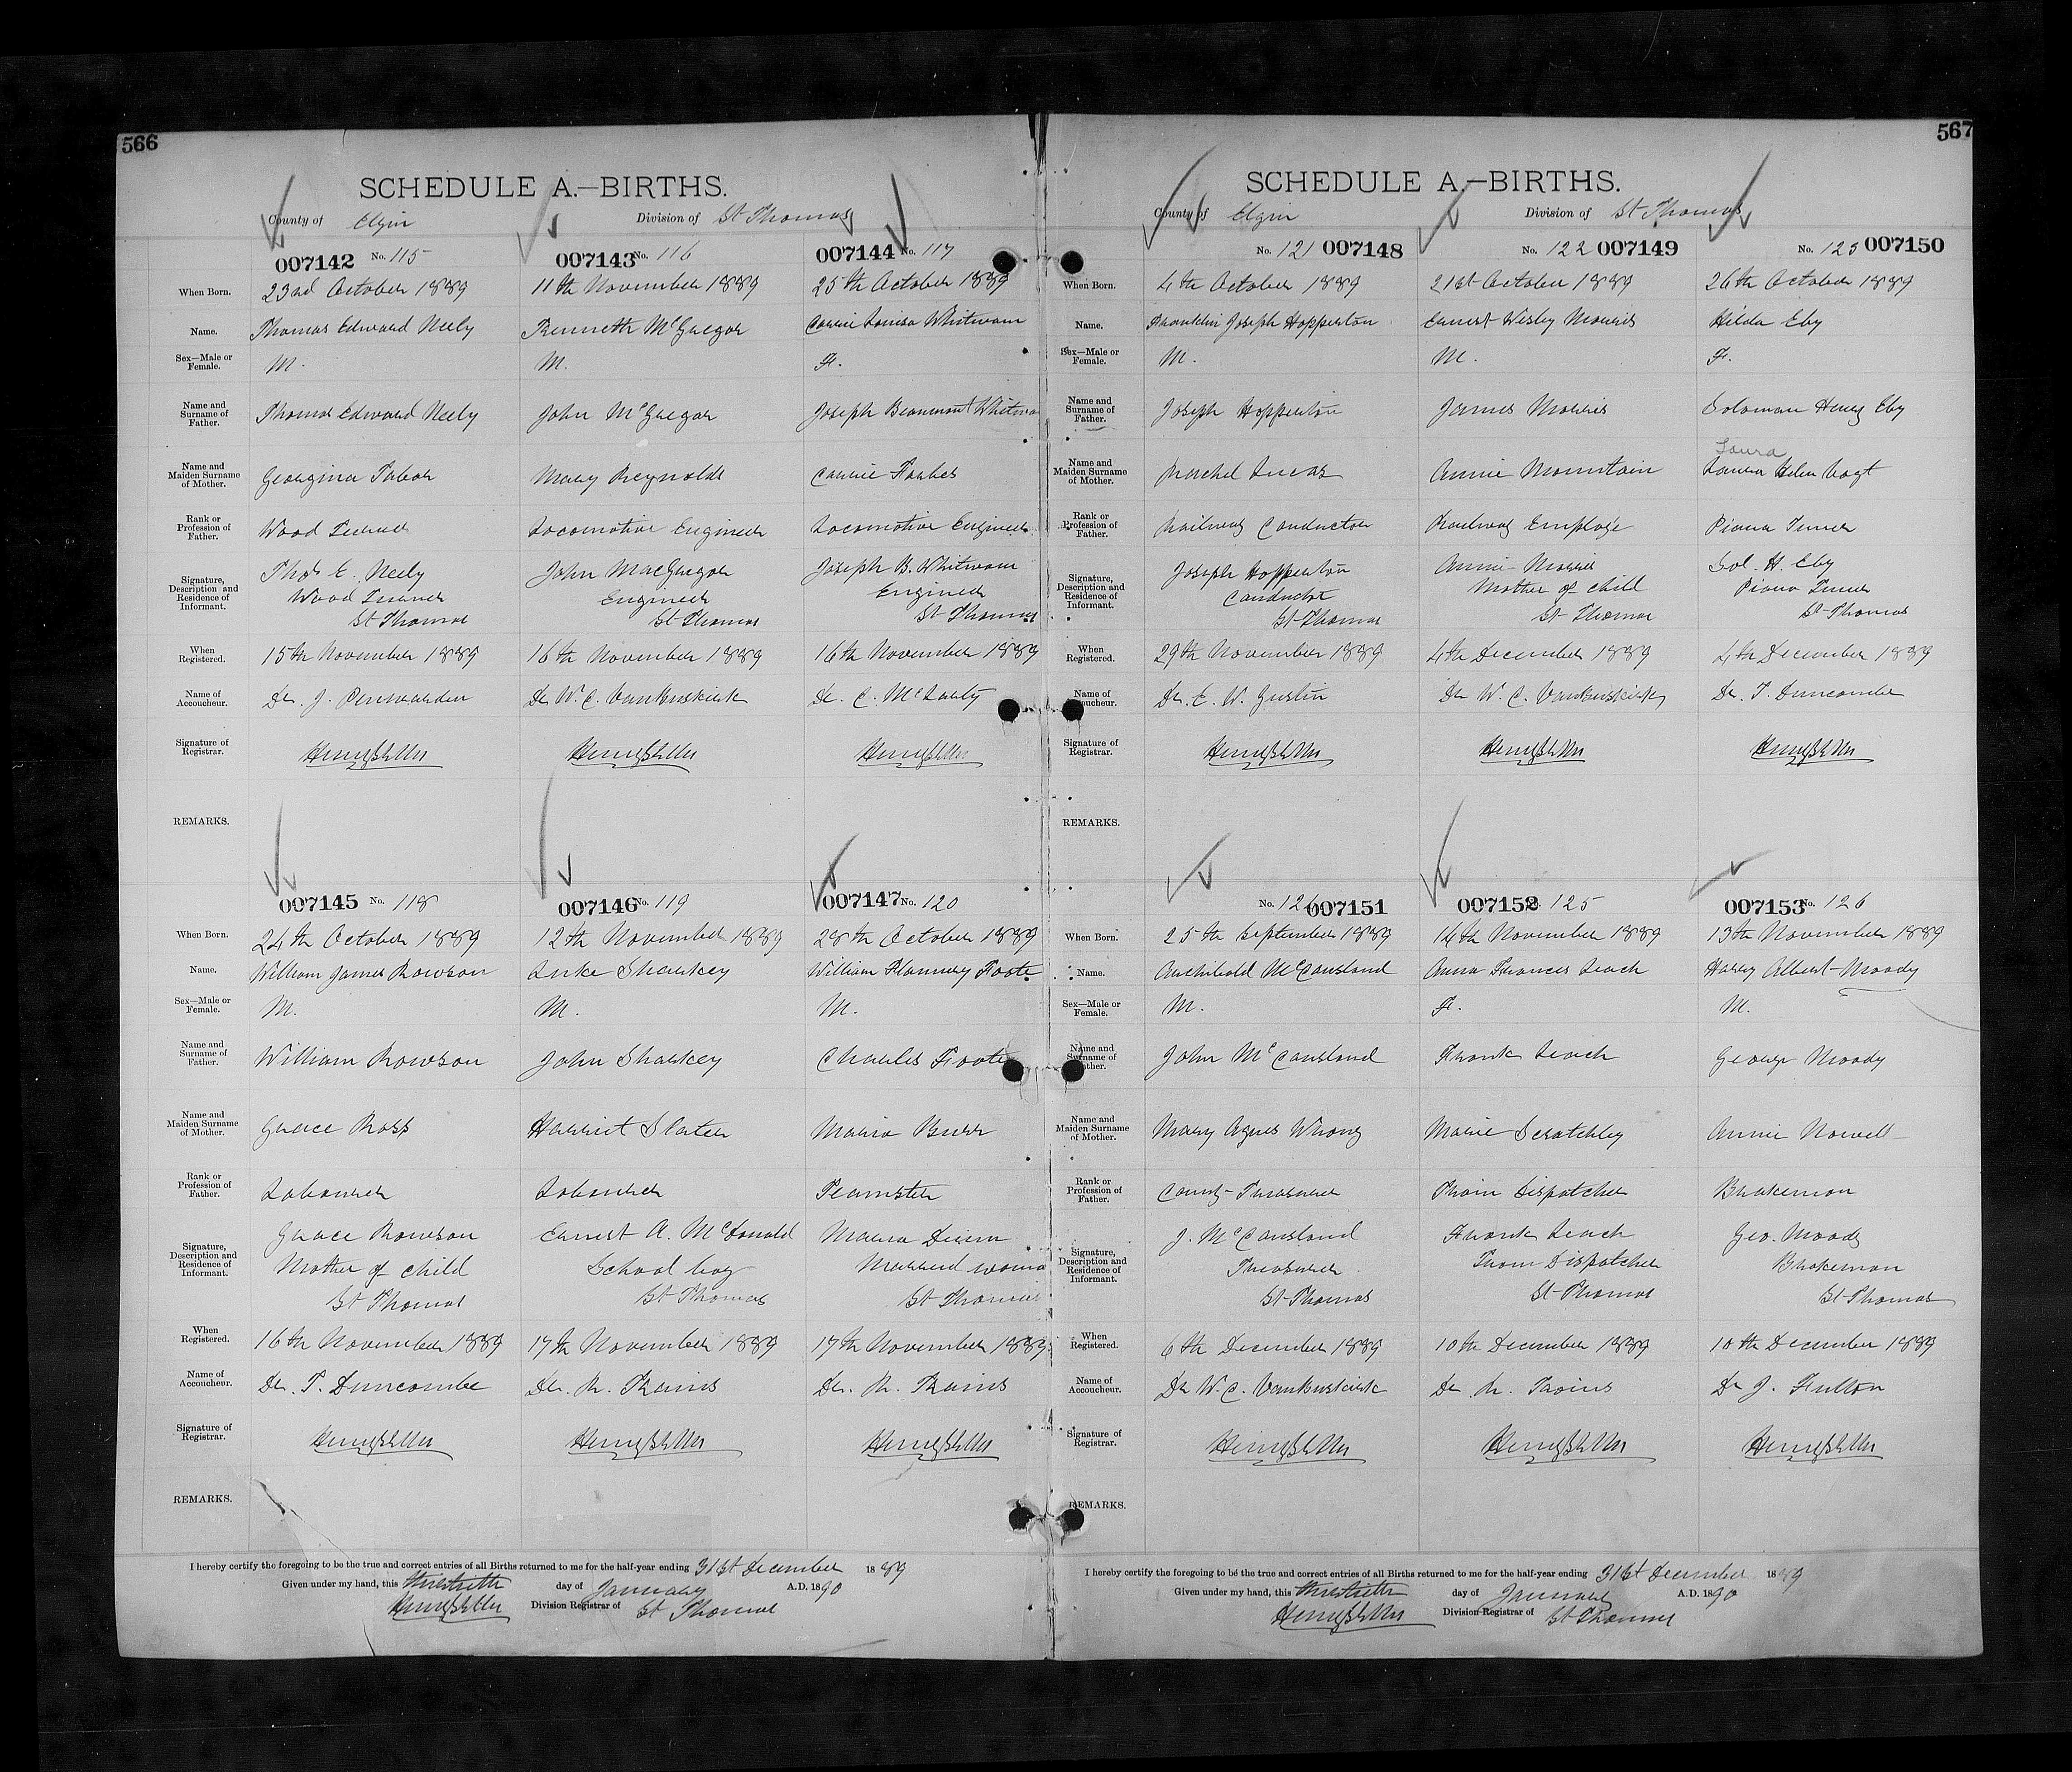 566
SCHEDULE A.—BIRTHS.
County of Elgin Division of St Thomas
007142 No. 115 007143 No. 116 007144 No. 117
When Born. 23rd October 1889 11th November 1889 25th October 1889
Name. Thomas Edward Neely Kenneth McGregor Carrie Louisa Whitwam
Sex—Male or Female. M. M. F.
Name and Surname of Father. Thomas Edward Neely John McGregor Joseph Beaumont Whitwam
Name and Maiden Surname of Mother. Georgina Tabor Mary Reynolds Carrie Forbes
Rank or Profession of Father. Wood Turner Locomotive Engineer Locomotive Engineer
Signature, Description and Residence of Informant. Thos E. Neely John MacGregor Joseph B. Whitwam
Wood Turner Engineer Engineer
St Thomas St Thomas St Thomas
When Registered. 15th November 1889 16th November 1889 16th November 1889
Name of Accoucheur. Dr. J. Penwarden Dr W. C. VanBuskirk Dr. C. McLarty
Signature of Registrar.
REMARKS.
007145 No. 118 007146 No. 119 007147 No. 120
When Born. 24th October 1889 12th November 1889 28th October 1889
Name. William James Rowson Luke Sharkey William Flannery Foote
Sex—Male or Female. M. M. M.
Name and Surname of Father. William Rowson John Sharkey Charles Foote
Name and Maiden Surname of Mother. Grace Ross Harriet Slater Maria Burr
Rank or Profession of Father. Labourer Labourer Teamster
Signature, Description and Residence of Informant. Grace Rowson Ernest A. McDonald Maria
Mother of child School boy Married woman
St Thomas St Thomas St Thomas
When Registered. 16th November 1889 17th November 1889 17th November 1889
Name of Accoucheur. Dr. T. Duncombe Dr. R. Trains Dr. R. Trains
Signature of Registrar.
REMARKS.
I hereby certify the foregoing to be the true and correct entries of all Births returned to me for the half-year ending 31st December 1889
Given under my hand, this thirtieth day of January A.D. 1890
Division Registrar of St Thomas
567
SCHEDULE A.—BIRTHS.
County of Elgin Division of St Thomas
No. 121 007148 No. 122 007149 No. 123 007150
When Born. 4th October 1889 21st October 1889 26th October 1889
Name. Franklin Joseph Hopperton Ernest Wesley Morris Hilda Eby
Sex—Male or Female. M. M. F.
Name and Surname of Father. Joseph Hopperton James Morris Soloman Henry Eby
Laura
Name and Maiden Surname of Mother. Rachel Lucas Annie Mountain Laura Helen Vogt
Rank or Profession of Father. Railway Conductor Railway Employe Piano Tuner
Signature, Description and Residence of Informant. Joseph Hopperton Annie Morris Sol. H. Eby
Conductor Mother of child Piano Tuner
St Thomas St Thomas St Thomas
When Registered. 29th November 1889 4th December 1889 4th December 1889
Name of Accoucheur. Dr. E. W. Gustin Dr W. C. VanBuskirk Dr. T. Duncombe
Signature of Registrar.
REMARKS.
No. 124 007151 007152 125 007153 No. 126
When Born. 25th September 1889 14th November 1889 13th November 1889
Name. Archibald McCausland Anna Frances Leach Harry Albert Moody
Sex—Male or Female. M. F. M.
Name and Surname of Father. John McCausland Frank Leach George Moody
Name and Maiden Surname of Mother. Mary Agnes Wrong Marie Scratchley Annie Nowell
Rank or Profession of Father. County Treasurer Train Dispatcher Brakeman
Signature, Description and Residence of Informant. J. McCausland Frank Leach Geo. Moody
Treasurer Train Dispatcher Brakeman
St Thomas St Thomas St Thomas
When Registered. 6th December 1889 10th December 1889 10th December 1889
Name of Accoucheur. Dr W. C. VanBuskirk Dr R. Trains Dr J. Fulton
Signature of Registrar.
REMARKS.
I hereby certify the foregoing to be the true and correct entries of all Births returned to me for the half-year ending 31st December 1889
Given under my hand, this thirtieth day of January A.D. 1890
Division Registrar of St Thomas